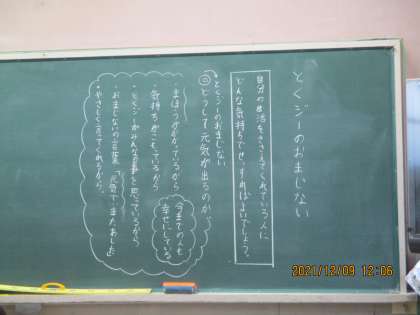 とくジーのおまじない
自分の生活をささえてくれている人に
どんな気持ちでせっすればよいでしょう。
とくジーのおまじない
どうして元気が出るのか。
・まほうがかかっているから
気持ちがこもっているから
・とくジーがみんなの事を思っているから
・おまじないの言葉「元気で、またあした」
・やさしく言ってくれるから。
今までの人も
幸せにしている
2021/12/09 12:06